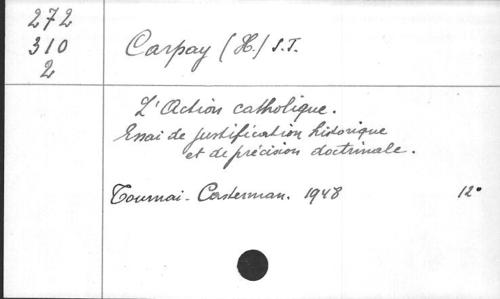 272
310
2
Carpay (H.) S.J.
L'Action catholique.
Essai de justification historique
et de précision doctrinale.
Tournai. Casterman. 1948 12°